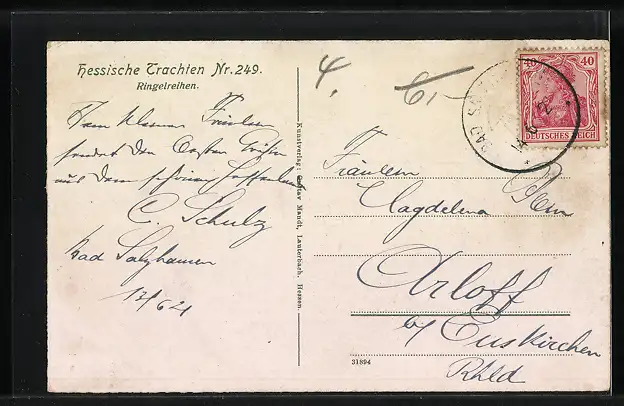 Hessische Trachten Nr. 249.
Ringelreihen.
Dem kleinen Fräulein
sendet den Ersten Gruß
aus dem schönen Hessenland
C. Schulz
Bad Salzhausen
17/6 21
Kunstverlag: Gustav Mandt, Lauterbach, Hessen.
4.
40 40
DEUTSCHES REICH
BAD SALZ
Fräulein
Magdelena
Arloff
b/ Euskirchen
Rhld
31894